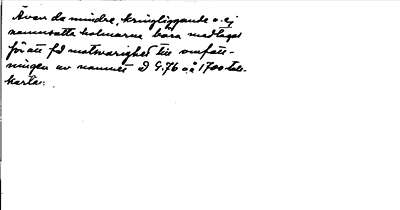 Även de mindre, kringliggande o. ej
namnsatta holmarne bara medtaget
för att få motsvarighet till omfatt-
ningen av namnet D 9:76 på 1700 tals-
karta.